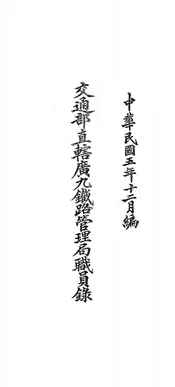 中華民國五年十二月編
交通部直轄廣九鐵路管理局職員錄